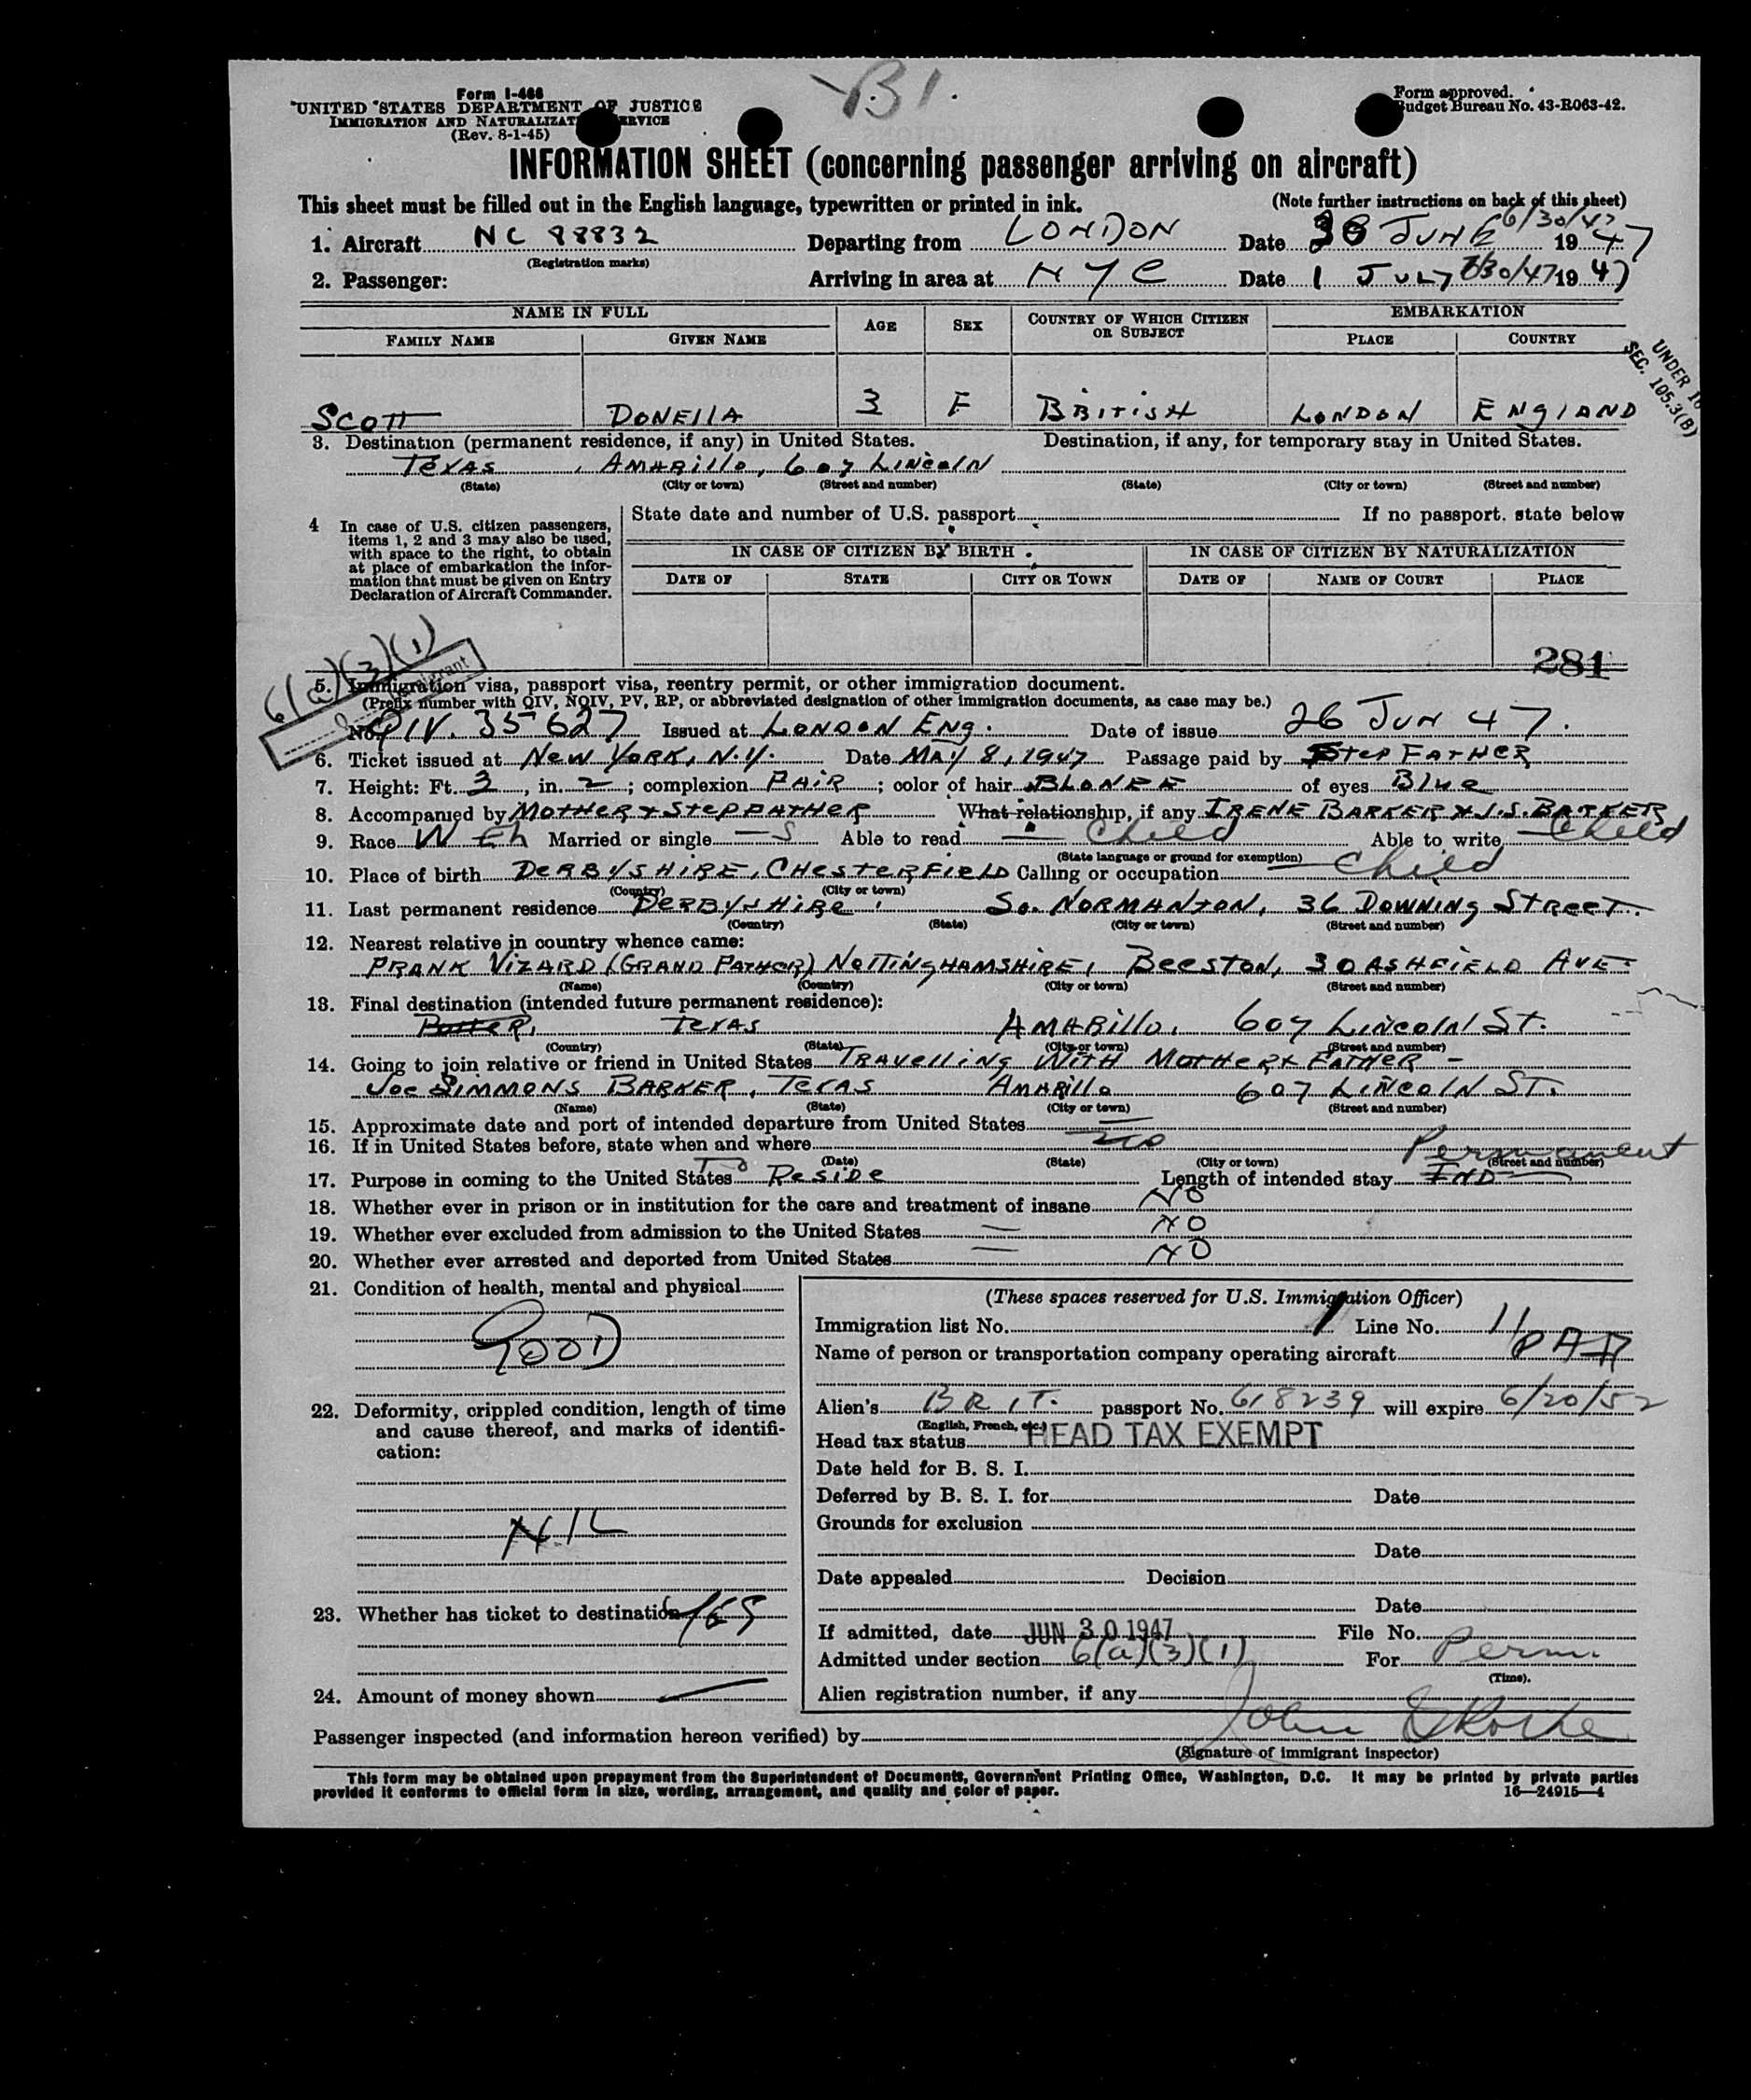 B1.
Form I-466
UNITED STATES DEPARTMENT OF JUSTICE
IMMIGRATION AND NATURALIZAT SERVICE
(Rev. 8-1-45)
Form approved.
Budget Bureau No. 43-R063-42.
INFORMATION SHEET (concerning passenger arriving on aircraft)
This sheet must be filled out in the English language, typewritten or printed in ink. (Note further instructions on back of this sheet)
1. Aircraft NC 88832 Departing from LONDON Date 30 JUNE 6/30/47 1947
(Registration marks)
2. Passenger: Arriving in area at NYC Date 1 JULY 6/30/47 1947
NAME IN FULL AGE SEX COUNTRY OF WHICH CITIZEN OR SUBJECT EMBARKATION
FAMILY NAME GIVEN NAME PLACE COUNTRY
UNDER 16
SEC. 105.3(B)
SCOTT DONELLA 3 F BRITISH LONDON ENGLAND
3. Destination (permanent residence, if any) in United States. Destination, if any, for temporary stay in United States.
TEXAS, AMARILLO, 607 LINCOLN
(State) (City or town) (Street and number) (State) (City or town) (Street and number)
4 In case of U.S. citizen passengers, items 1, 2 and 3 may also be used, with space to the right, to obtain at place of embarkation the information that must be given on Entry Declaration of Aircraft Commander.
State date and number of U.S. passport If no passport, state below
IN CASE OF CITIZEN BY BIRTH IN CASE OF CITIZEN BY NATURALIZATION
DATE OF STATE CITY OR TOWN DATE OF NAME OF COURT PLACE
281
6(a)(3)(1)
5. Immigration visa, passport visa, reentry permit, or other immigration document.
(Prefix number with QIV, NQIV, PV, RP, or abbreviated designation of other immigration documents, as case may be.)
No. QIV. 35627 Issued at LONDON ENG. Date of issue 26 JUN 47.
6. Ticket issued at NEW YORK, N.Y. Date MAY 8, 1947 Passage paid by STEP FATHER
7. Height: Ft. 3, in. 2; complexion FAIR; color of hair BLONDE of eyes BLUE
8. Accompanied by MOTHER & STEPFATHER What relationship, if any IRENE BARKER & J.S. BARKER
9. Race W Eh Married or single S Able to read Child Able to write Child
(State language or ground for exemption)
10. Place of birth DERBYSHIRE, CHESTERFIELD Calling or occupation Child
(Country) (City or town)
11. Last permanent residence DERBYSHIRE, So. NORMANTON, 36 DOWNING STREET.
(Country) (State) (City or town) (Street and number)
12. Nearest relative in country whence came:
FRANK VIZARD (GRAND FATHER) NOTTINGHAMSHIRE, BEESTON, 30 ASHFIELD AVE
(Name) (Country) (City or town) (Street and number)
13. Final destination (intended future permanent residence):
POTTER, TEXAS AMARILLO, 607 LINCOLN ST.
(Country) (State) (City or town) (Street and number)
14. Going to join relative or friend in United States TRAVELLING WITH MOTHER & FATHER -
JOE SIMMONS BARKER, TEXAS AMARILLO 607 LINCOLN ST.
(Name) (State) (City or town) (Street and number)
15. Approximate date and port of intended departure from United States
16. If in United States before, state when and where no
(Date) (State) (City or town) (Street and number)
Permanent
17. Purpose in coming to the United States To RESIDE Length of intended stay IND
18. Whether ever in prison or in institution for the care and treatment of insane NO
19. Whether ever excluded from admission to the United States NO
20. Whether ever arrested and deported from United States NO
21. Condition of health, mental and physical
GOOD
22. Deformity, crippled condition, length of time and cause thereof, and marks of identification:
NIL
23. Whether has ticket to destination YES
24. Amount of money shown
(These spaces reserved for U.S. Immigration Officer)
Immigration list No. 1 Line No. 11
Name of person or transportation company operating aircraft PAA
Alien's BRIT. passport No. 618239 will expire 6/20/52
(English, French, etc.)
Head tax status HEAD TAX EXEMPT
Date held for B. S. I.
Deferred by B. S. I. for Date
Grounds for exclusion
Date
Date appealed Decision
Date
If admitted, date JUN 30 1947 File No.
Admitted under section 6(a)(3)(1) For Perm.
(Time).
Alien registration number, if any
Passenger inspected (and information hereon verified) by John
(Signature of immigrant inspector)
This form may be obtained upon prepayment from the Superintendent of Documents, Government Printing Office, Washington, D.C. It may be printed by private parties
provided it conforms to official form in size, wording, arrangement, and quality and color of paper. 16—24915-4